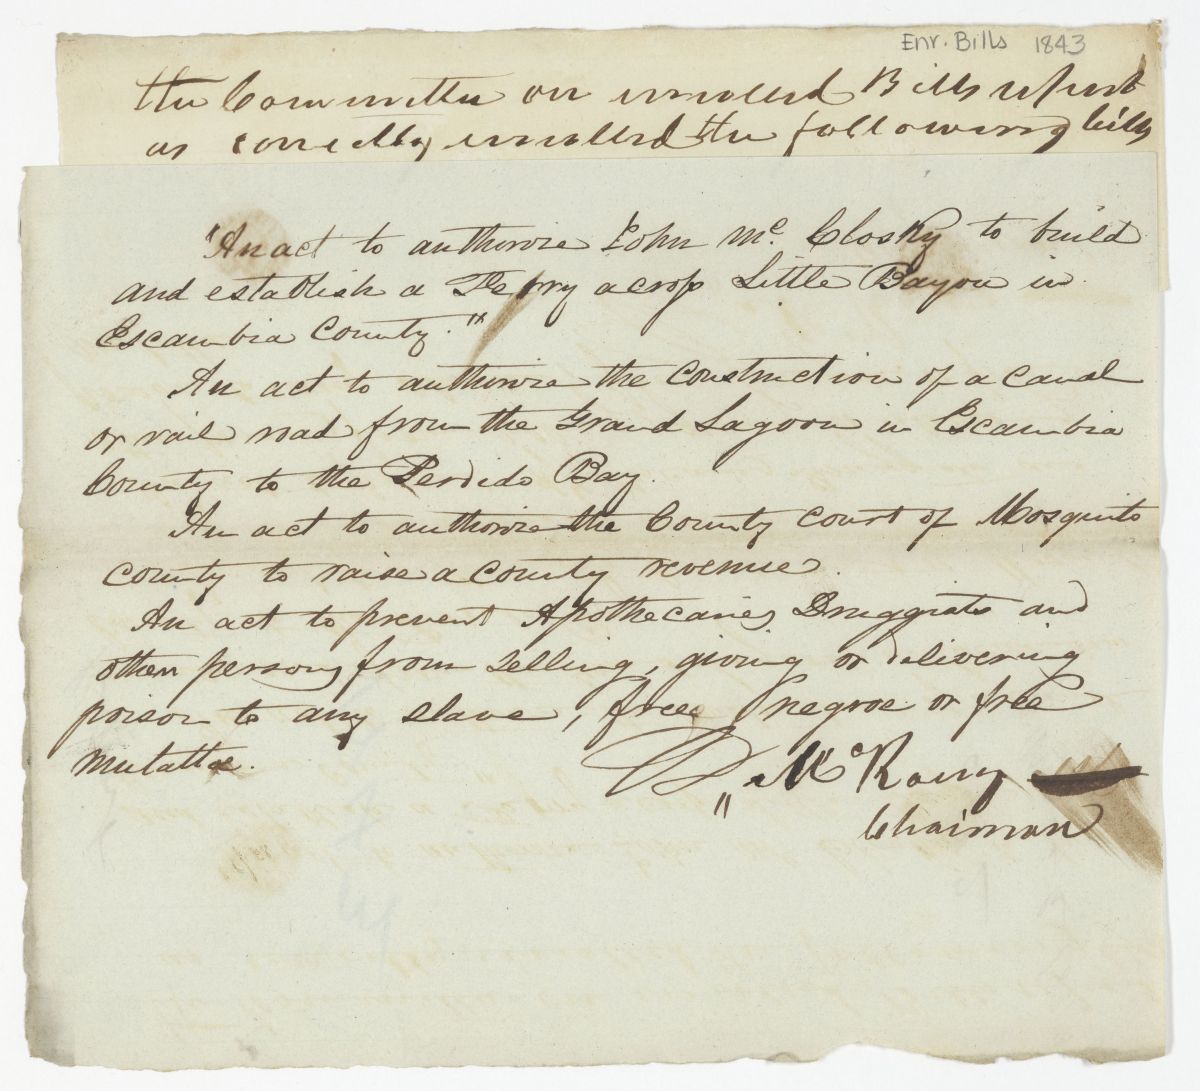 Enr. Bills 1843
the Committee on enrolled Bills report
as correctly enrolled the following bills
"An act to authorize John Mc. Closky to build
and establish a Ferry across Little Bayou in
Escambia County."
An act to authorize the construction of a canal
or rail road from the Grand Lagoon in Escambia
County to the Perdido Bay.
An act to authorize the County court of Mosquito
county to raise a county revenue.
An act to prevent Apothecaries Druggists and
other persons from selling, giving or delivering
poison to any slave, free negroe or free
mulattoe.
D, McRaeny
Chairman